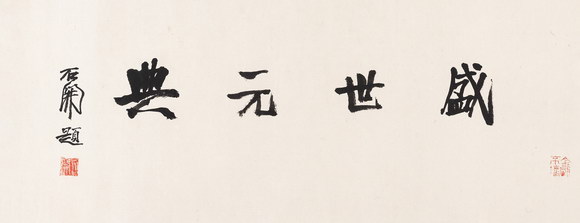 盛世元典
石開題